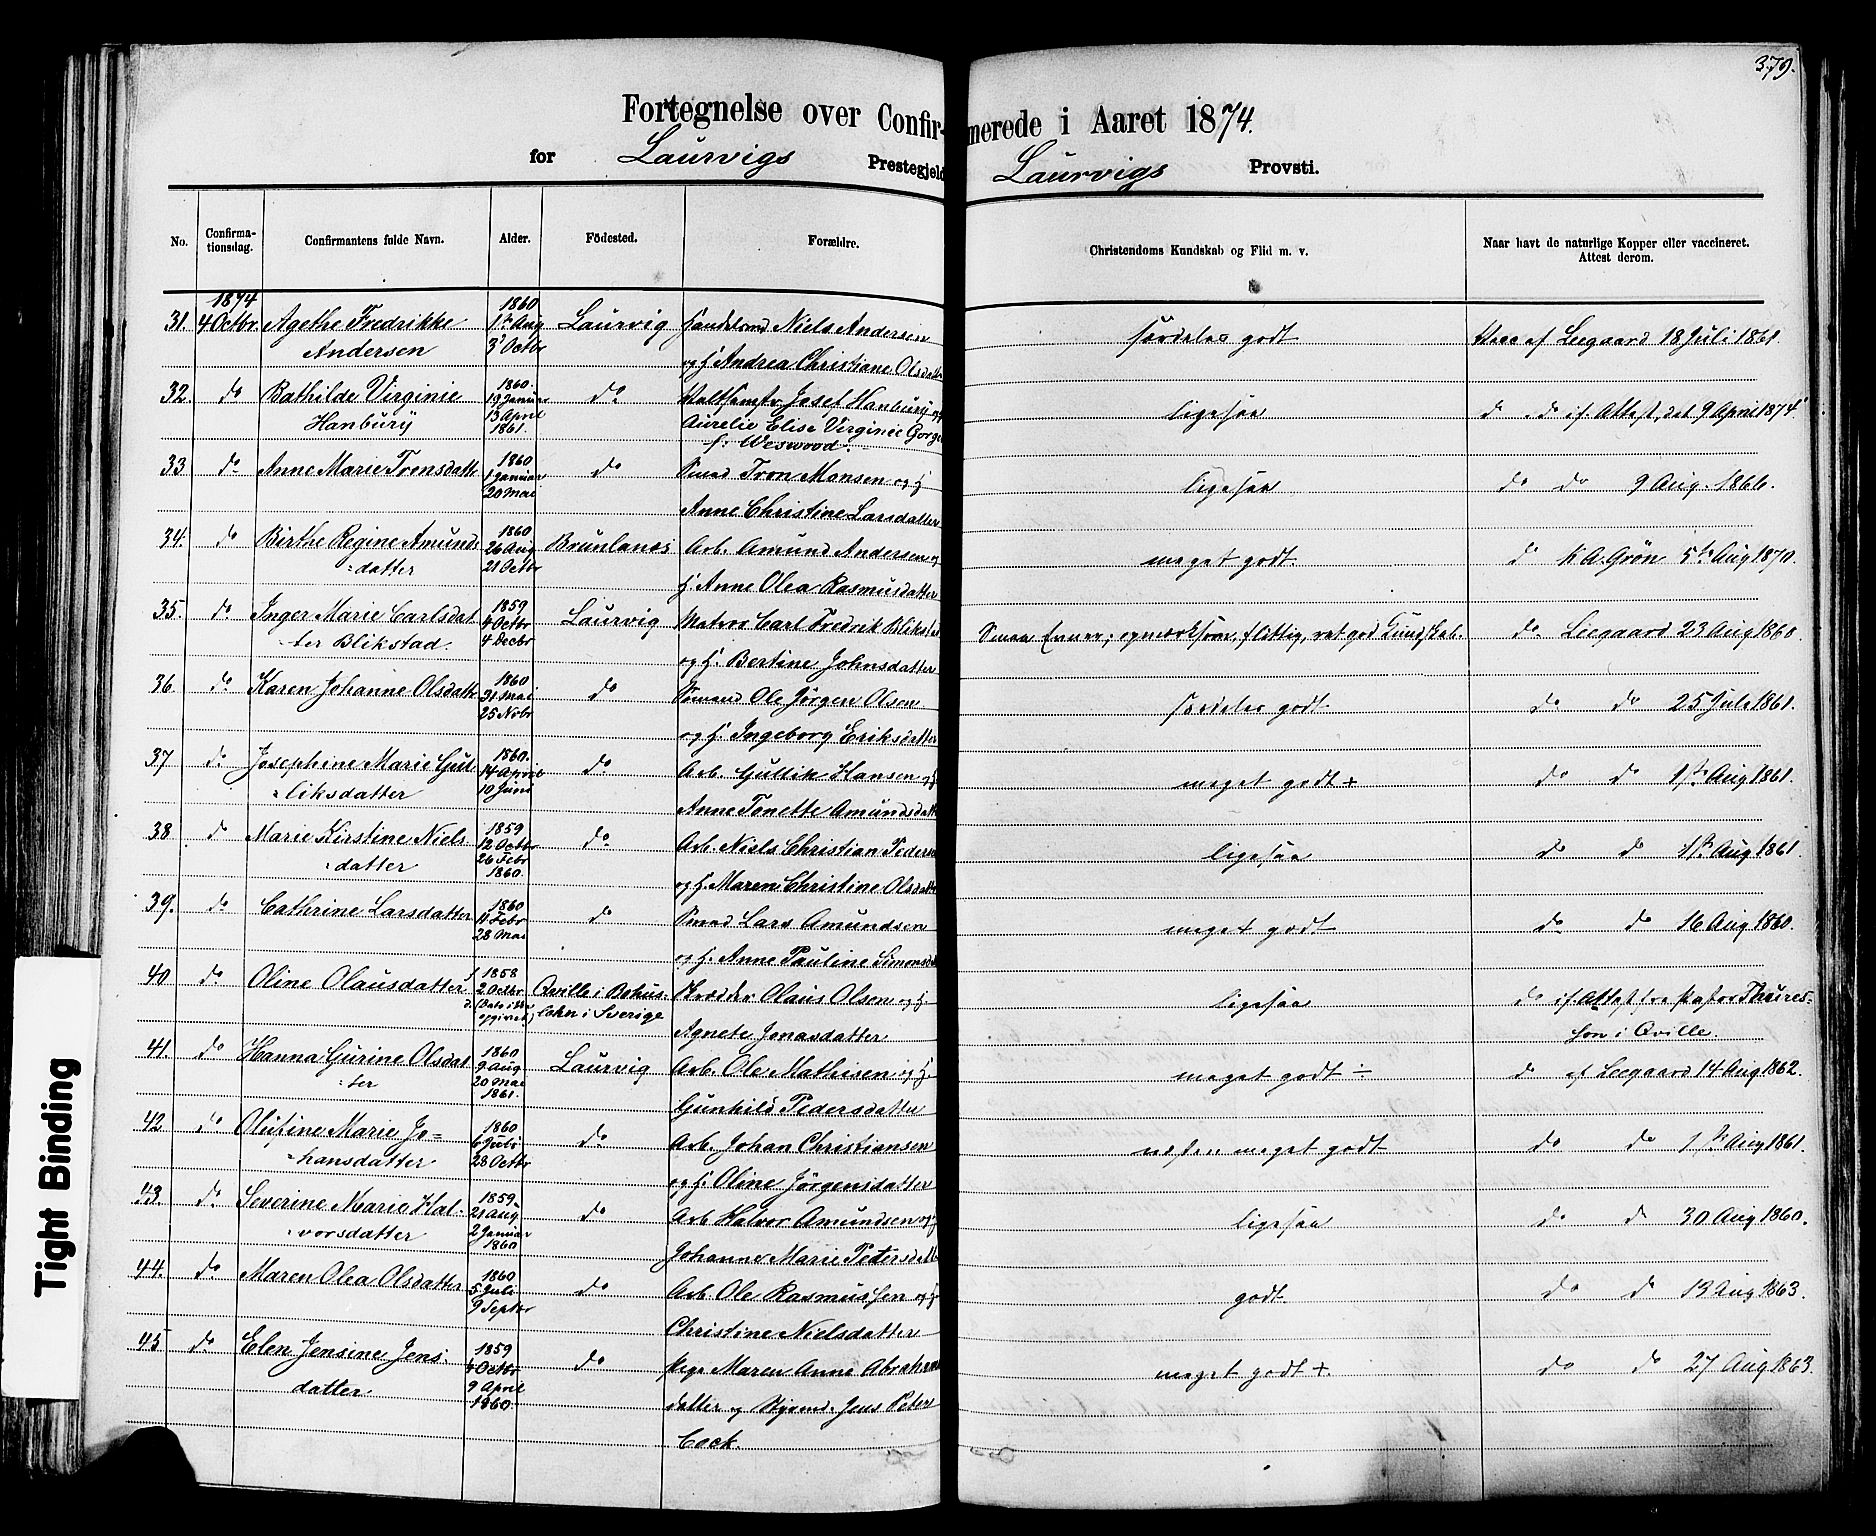 379.
Fortegnelse over Confirmerede i Aaret 1874.
for Laurvigs Prestegjeld Laurvigs Provsti.
No. Confirmationsdag. Confirmantens fulde Navn. Alder. Födested. Forældre. Christendoms Kundskab og Flid m. v. Naar havt de naturlige Kopper eller vaccineret. Attest derom.
1874 1860
31. 4 Octbr. Agethe Fredrikke 1ste Aug Laurvig Niels Andersen særdeles godt Vacc af Leegaard 18 Juli 1861.
Andersen 3 Octbr og H. Andrea Christiane Olsdatt
1860.
32. do Bathilde Virginie 19 Januar do Josef Hanbury og ligesaa do do if. Attest, dat 9 April 1874
Hanbury 13 April 1861. Aurelie Elise Verginie Gorge
f. Weswood.
1860
33 do Anne Marie Tronsdatt 1 Januar do Smed Tron Monsen og H ligesaa do do 9 Aug. 1866.
20 Mai Anne Christine Larsdatter
1860
34. do Birthe Regine Amunds 26 Aug Brunlanes Arb. Amund Andersen og meget godt. do K A. Grön 5te Aug 1870.
datter 21 Octbr H Anne Olea Rasmusdatter
1859
35. do Inger Marie Carlsdat 4 Octbr Laurvig Matros Carl Fredrik Blikstad Smaa Evner; opmærksom, flittig, ret god Kundskab. do Leegaard 23 Aug 1860
ter Blikstad. 4 Decbr og H. Bertine Johnsdatter
1860
36. do Karen Johanne Olsdatt 31 Mai do Sömand Ole Jörgen Olsen særdeles godt do do 25 Juli 1861.
25 Nobr og H. Ingeborg Eriksdatter
1860.
37 do Josephine Marie Gul 14 April do Arb. Gullik Hansen og H meget godt + do do 1ste Aug 1861.
liksdatter 10 Juni Anne Tonette Amundsdatt
1859
38 do Marie Kirstine Niels 12 Octbr do Arb. Niels Christian Peders ligesaa do do 1ste Aug 1861.
datter 26 Febr 1860. og H. Maren Christine Olsdatt
1860
39. do Cathrine Larsdatter 11 Febr do Smed Lars Amundsen meget godt do do 16 Aug 1860.
28 Mai og H. Anne Pauline Simonsd
1858
40 do Oline Olausdatter f. 2 Octbr Qville i Bohus- Skrædder Olaus Olsen og H ligesaa do if. Attest fra Pastor Thures-
d. (Dato ikke opgivet) lehn i Sverige Agnete Jonasdatter son i Qville.
1860
41. do Hanna Gurine Olsdat 9 Aug Laurvig Arb. Ole Mathisen og H. meget godt ÷ do af Leegaard 14 Aug 1862.
ter 20 Mai 1861. Gunhild Pedersdatter
1860
42 do Olufine Marie Jo= 6 Juli do Arb. Johan Christiansen næsten meget godt do do 1ste Aug 1861.
hansdatter 28 Octbr og H. Oline Jörgensdatter
1859.
43. do Severine Marie Hal- 21 Aug do Arb Halvor Amundsen og H ligesaa do do 30 Aug 1860.
vorsdatter 2 Januar 1860 Johanne Marie Petersdatt
1860
44. do Maren Olea Olsdatter 5 Juli do Arb. Ole Rasmussen og H godt. do do 13 Aug 1863.
9 Septbr Christine Nielsdatter
1859
45 do Elen Jensine Jens 4 Octbr do Pige Maren Anne Abrahams meget godt +. do do 27 Aug 1863.
datter 9 April 1860. datter og Styrmd. Jens Peter
Cock.
Tight Binding